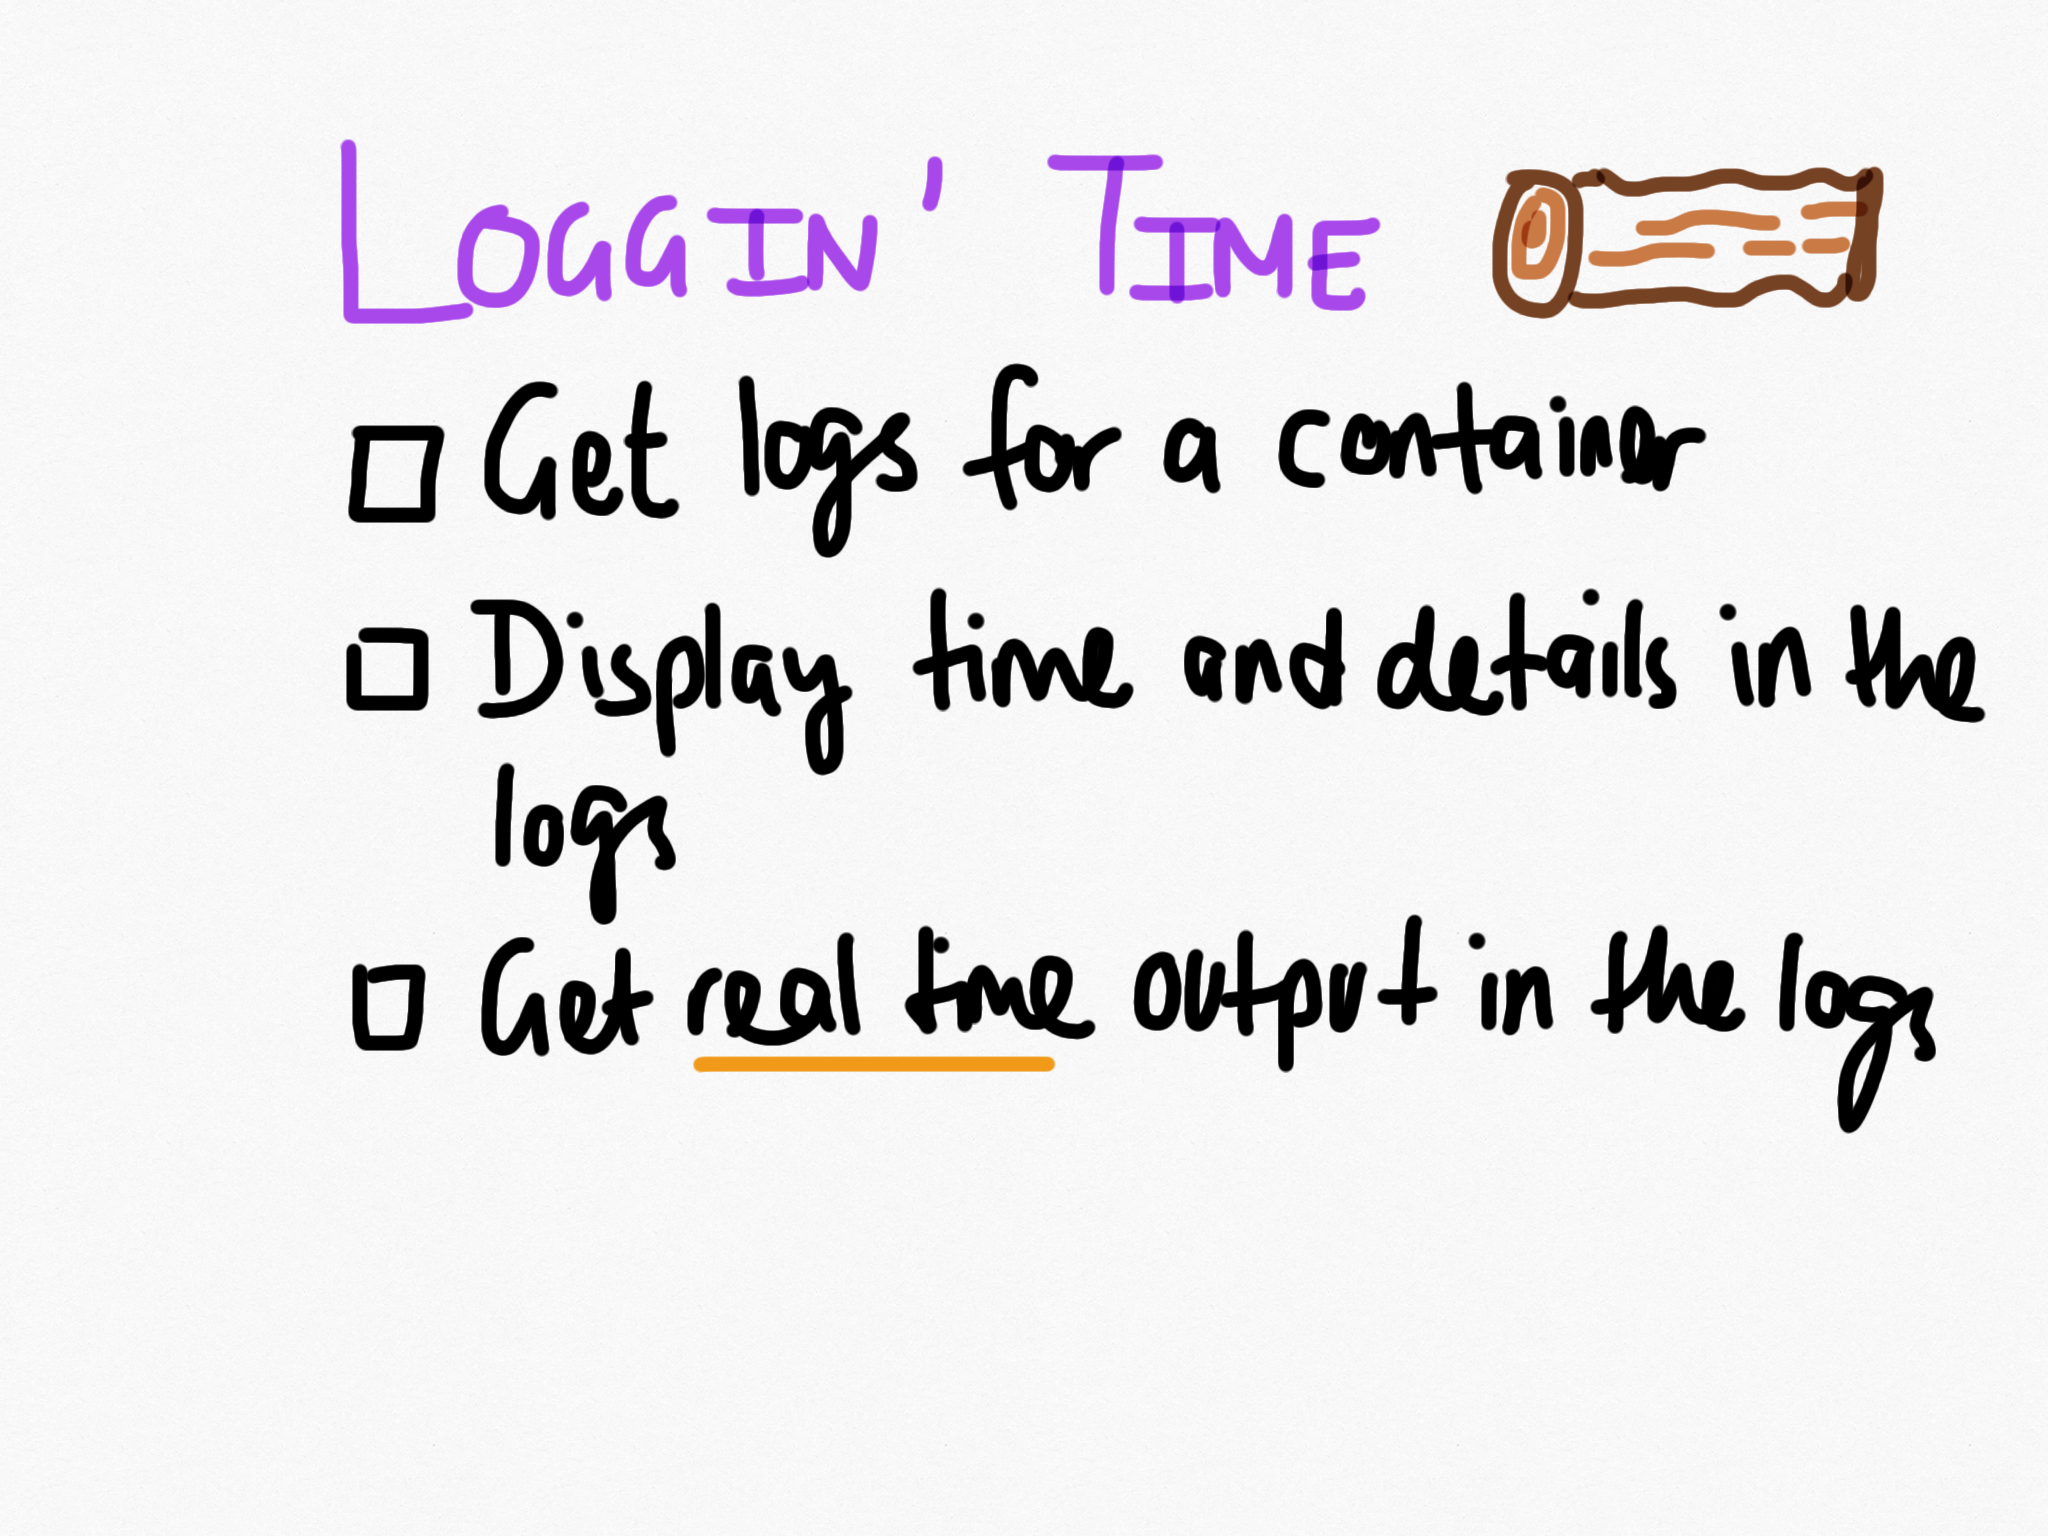 LOGGIN' TIME
Get logs for a container
Display time and details in the
logs
Get real time output in the logs